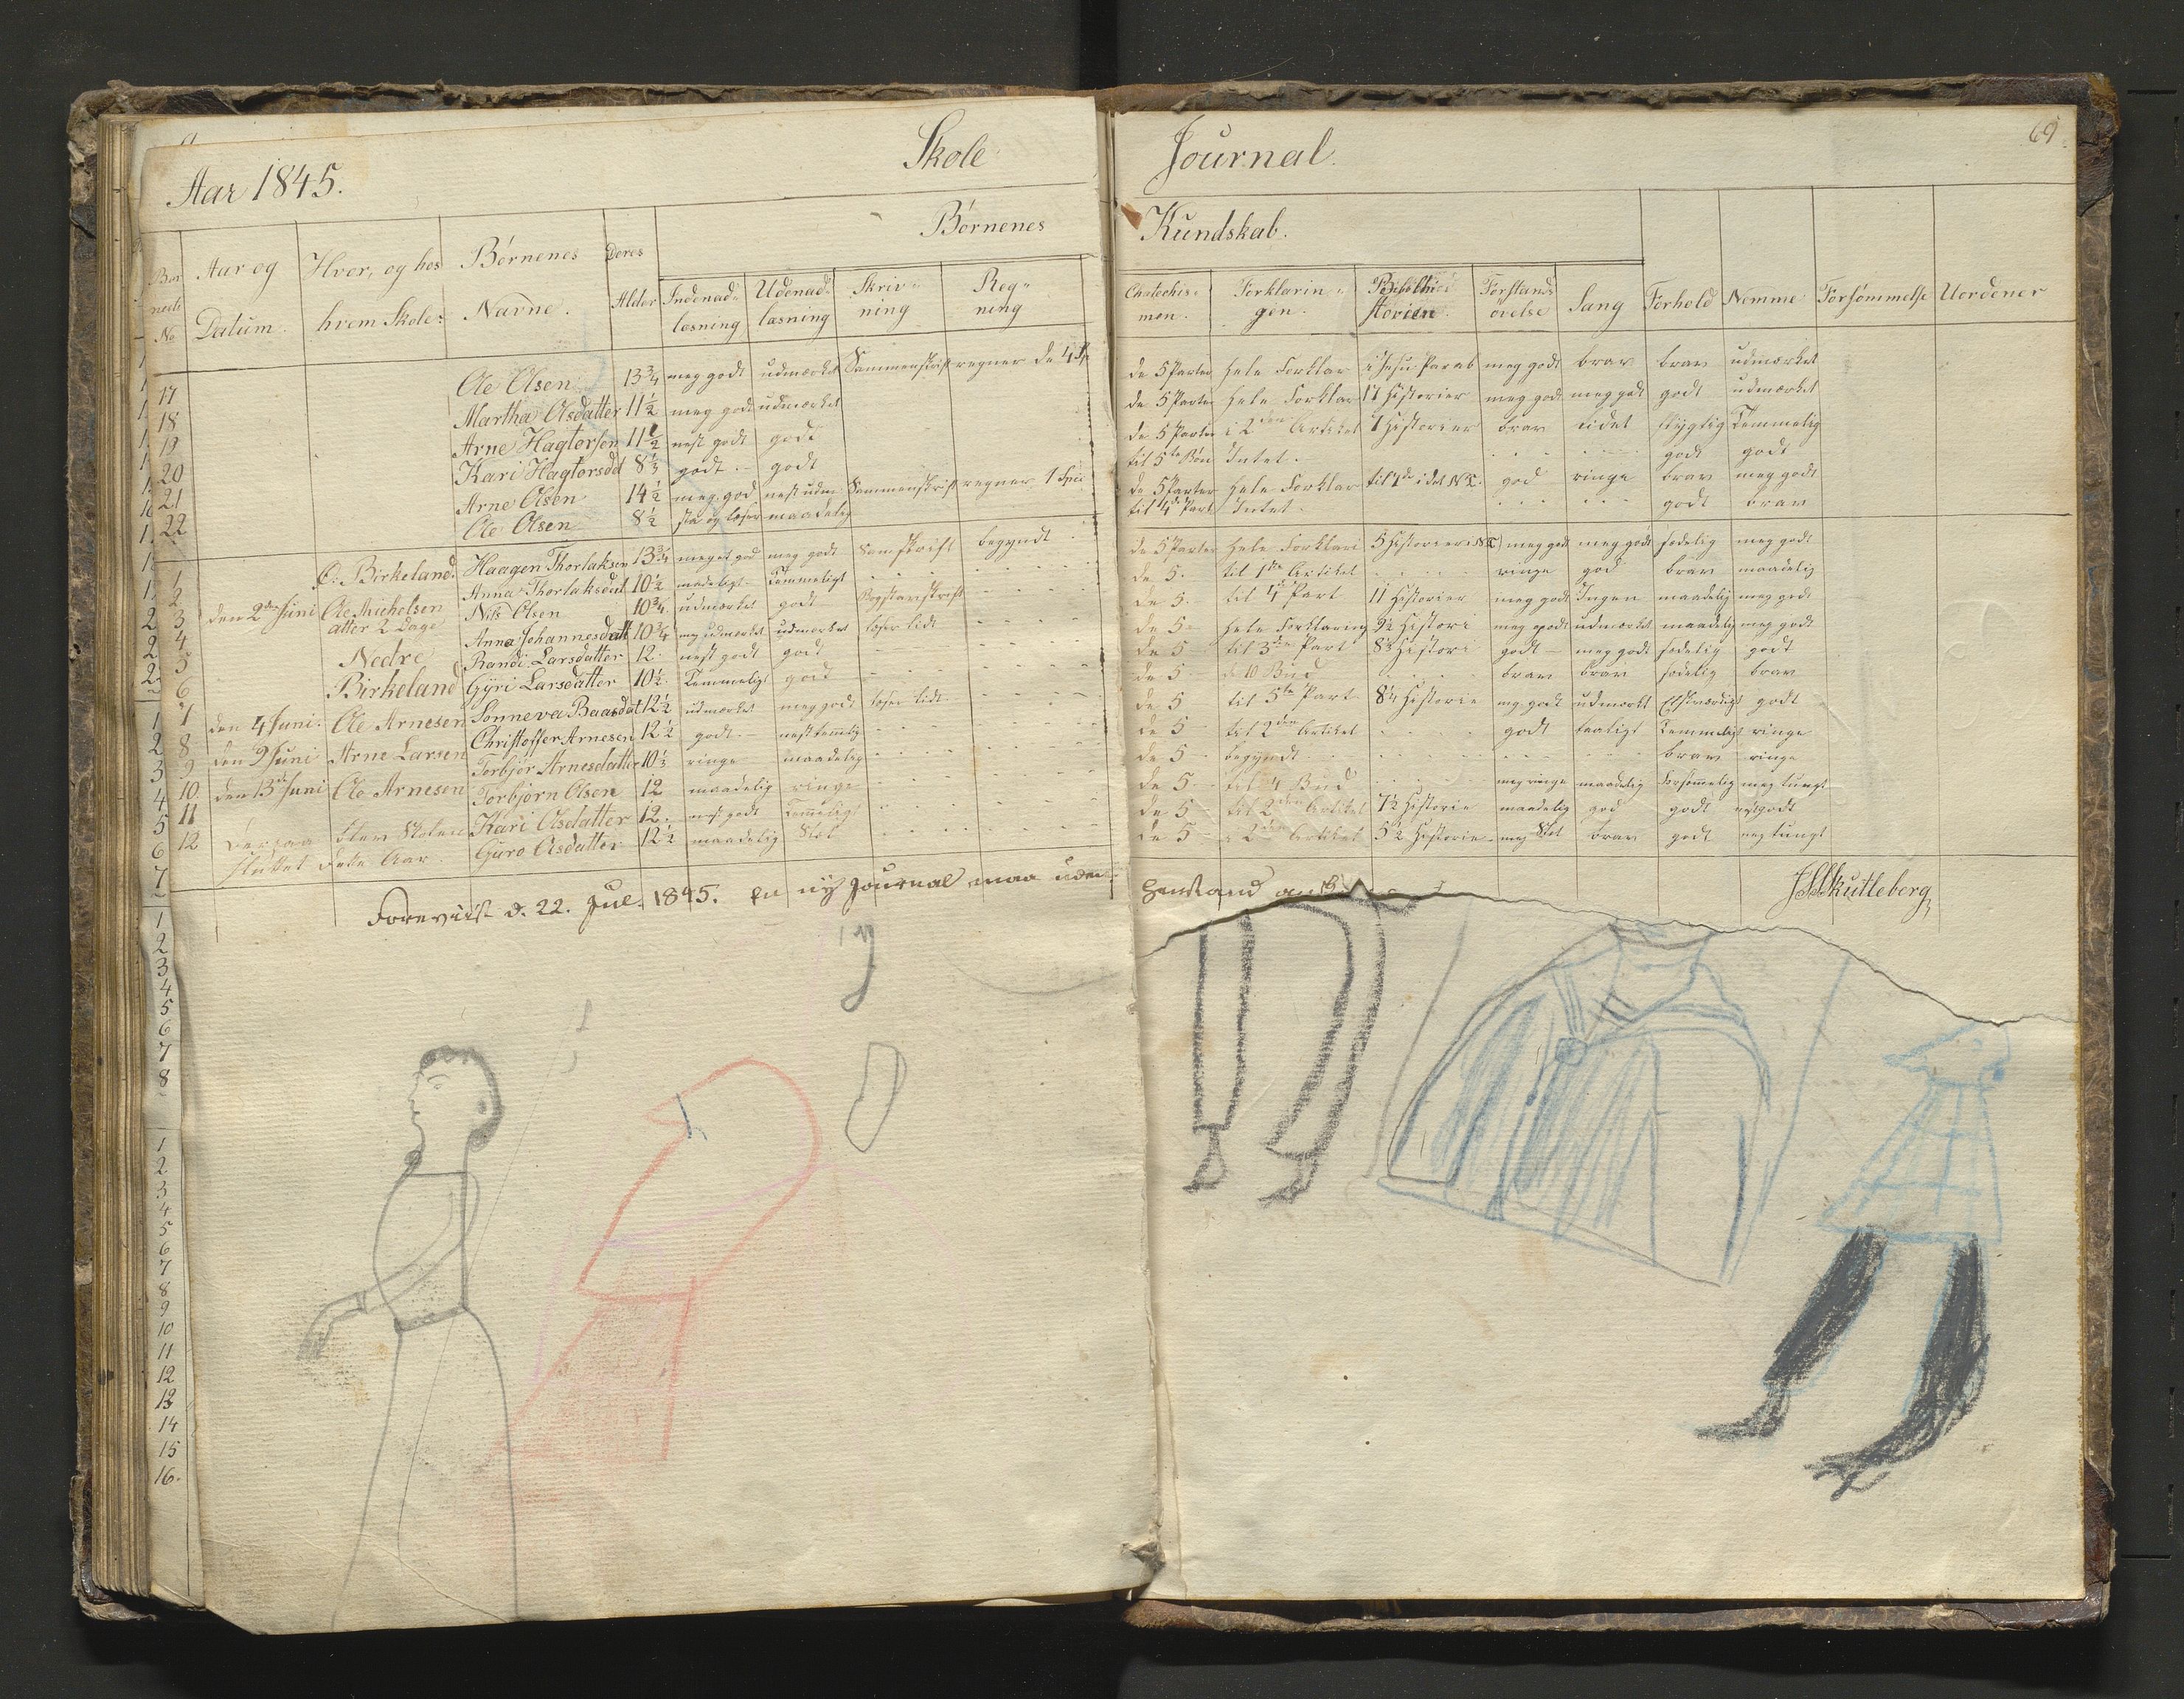 Aar 1845. Skole Journal. 69.
Børnenes Kundskab.
Aar og Datum. Hvor, og hos hvem Skole: Børnenes Navne. Deres Alder Indenadlæsning Udenadlæsning Skrivning Regning Chatechismen. Forklaringen. Forstandsøvelse Sang Forhold Nemme Forsømmelse Uordener
17 Ole Olsen 13 3/4 meg godt udmærket Sammenskrift regner de 4 Sp de 5 Parter hele Forklar i Jesu Parab meg godt brav brav udmærket
18 Martha Olsdatter 11 1/2 meg godt udmærket de 5 Parter hele Forklar 11 Historier meg godt meg godt godt udmærket
19 Arne Hagtorsen 11 1/2 nest godt godt de 5 Parter i 2den Artikel 7 Historier brav lidet flygtig Temmelig
20 Kari Hagtorsdd 8 1/3 godt - godt til 5te Bøn Intet. godt godt
21 Arne Olsen 14 1/2 meg. god nest udm. Sammenskrift regner 1 Spec de 5 Parter hele Forklar god ringe brav meg godt
22 Ole Olsen 8 1/2 sta og læser maadelig til 4 Part Intet. godt brav
1 O. Birkeland. Haagen Thorlaksen 13 3/4 meget god meg godt Samskrift begyndt de 5 Parter hele Forklari 5 Historier i N.T. meg godt meg godt sødelig meg godt
2 Anna Thorlaksdat 10 1/2 madeligt Temmeligt de 5. til 1ste Artikel ringe god brav maadelig
3 den 2den Juni Ole Michelsen Nils Olsen 10 3/4 udmærket godt Bogstavskrift de 5. til 4 Part 11 Historier meg godt Ingen maadelig meg godt
4 atter 2 Dage Anna Johannesdatt 10 3/4 meg udmærket udmærket læser lidt de 5 hele Forklaring 9 1/2 Histori meg godt udmærket maadelig meg godt
5 Nedre Randi Larsdatter 12. nest godt god de 5 til 3die Part 8 1/2 Histori godt - meg godt sødelig godt
6 Birkeland Gÿri Larsdatter 10 1/2 Temmeligt godt de 5 de 10 Bud brav brav sødelig brav
7 den 4 Juni. Ole Arnesen Sönneva Baardsdat 12 1/2 udmærket meg godt læser lidt de 5 til 5te Part 8 1/4 Historie mg. godt udmærkt godt
8 den 9 Juni Arne Larsen Christoffer Arnesen 12 1/2 godt - nest temmelig de 5 til 2den Artikel godt taaligt Temmeligt ringe
9 Torbjör Arnesdatter 10 1/2 ringe maadelig de 5 begyndt brav ringe
10. den 13de Juni Ole Arnesen Torbjörn Olsen 12 maadelig ringe de 5 til 4 Bud meg ringe maadelig forsømmelig meg tungt
11 Kari Olsdatter 12. nest godt Temmelig de 5 til 2den Artikel 7 1/2 Historie maadelig god godt nest godt
12 Guro Olsdatter 12 1/2 maadelig Slet de 5 i 2den Artikel 5 1/2 Historie meg Slet brav godt meg tungt
Derpaa blev Skolen
sluttet dette Aar.
JSSkutleberg
Foreviist d. 22. Jul. 1845. En nÿ Journal maa uden